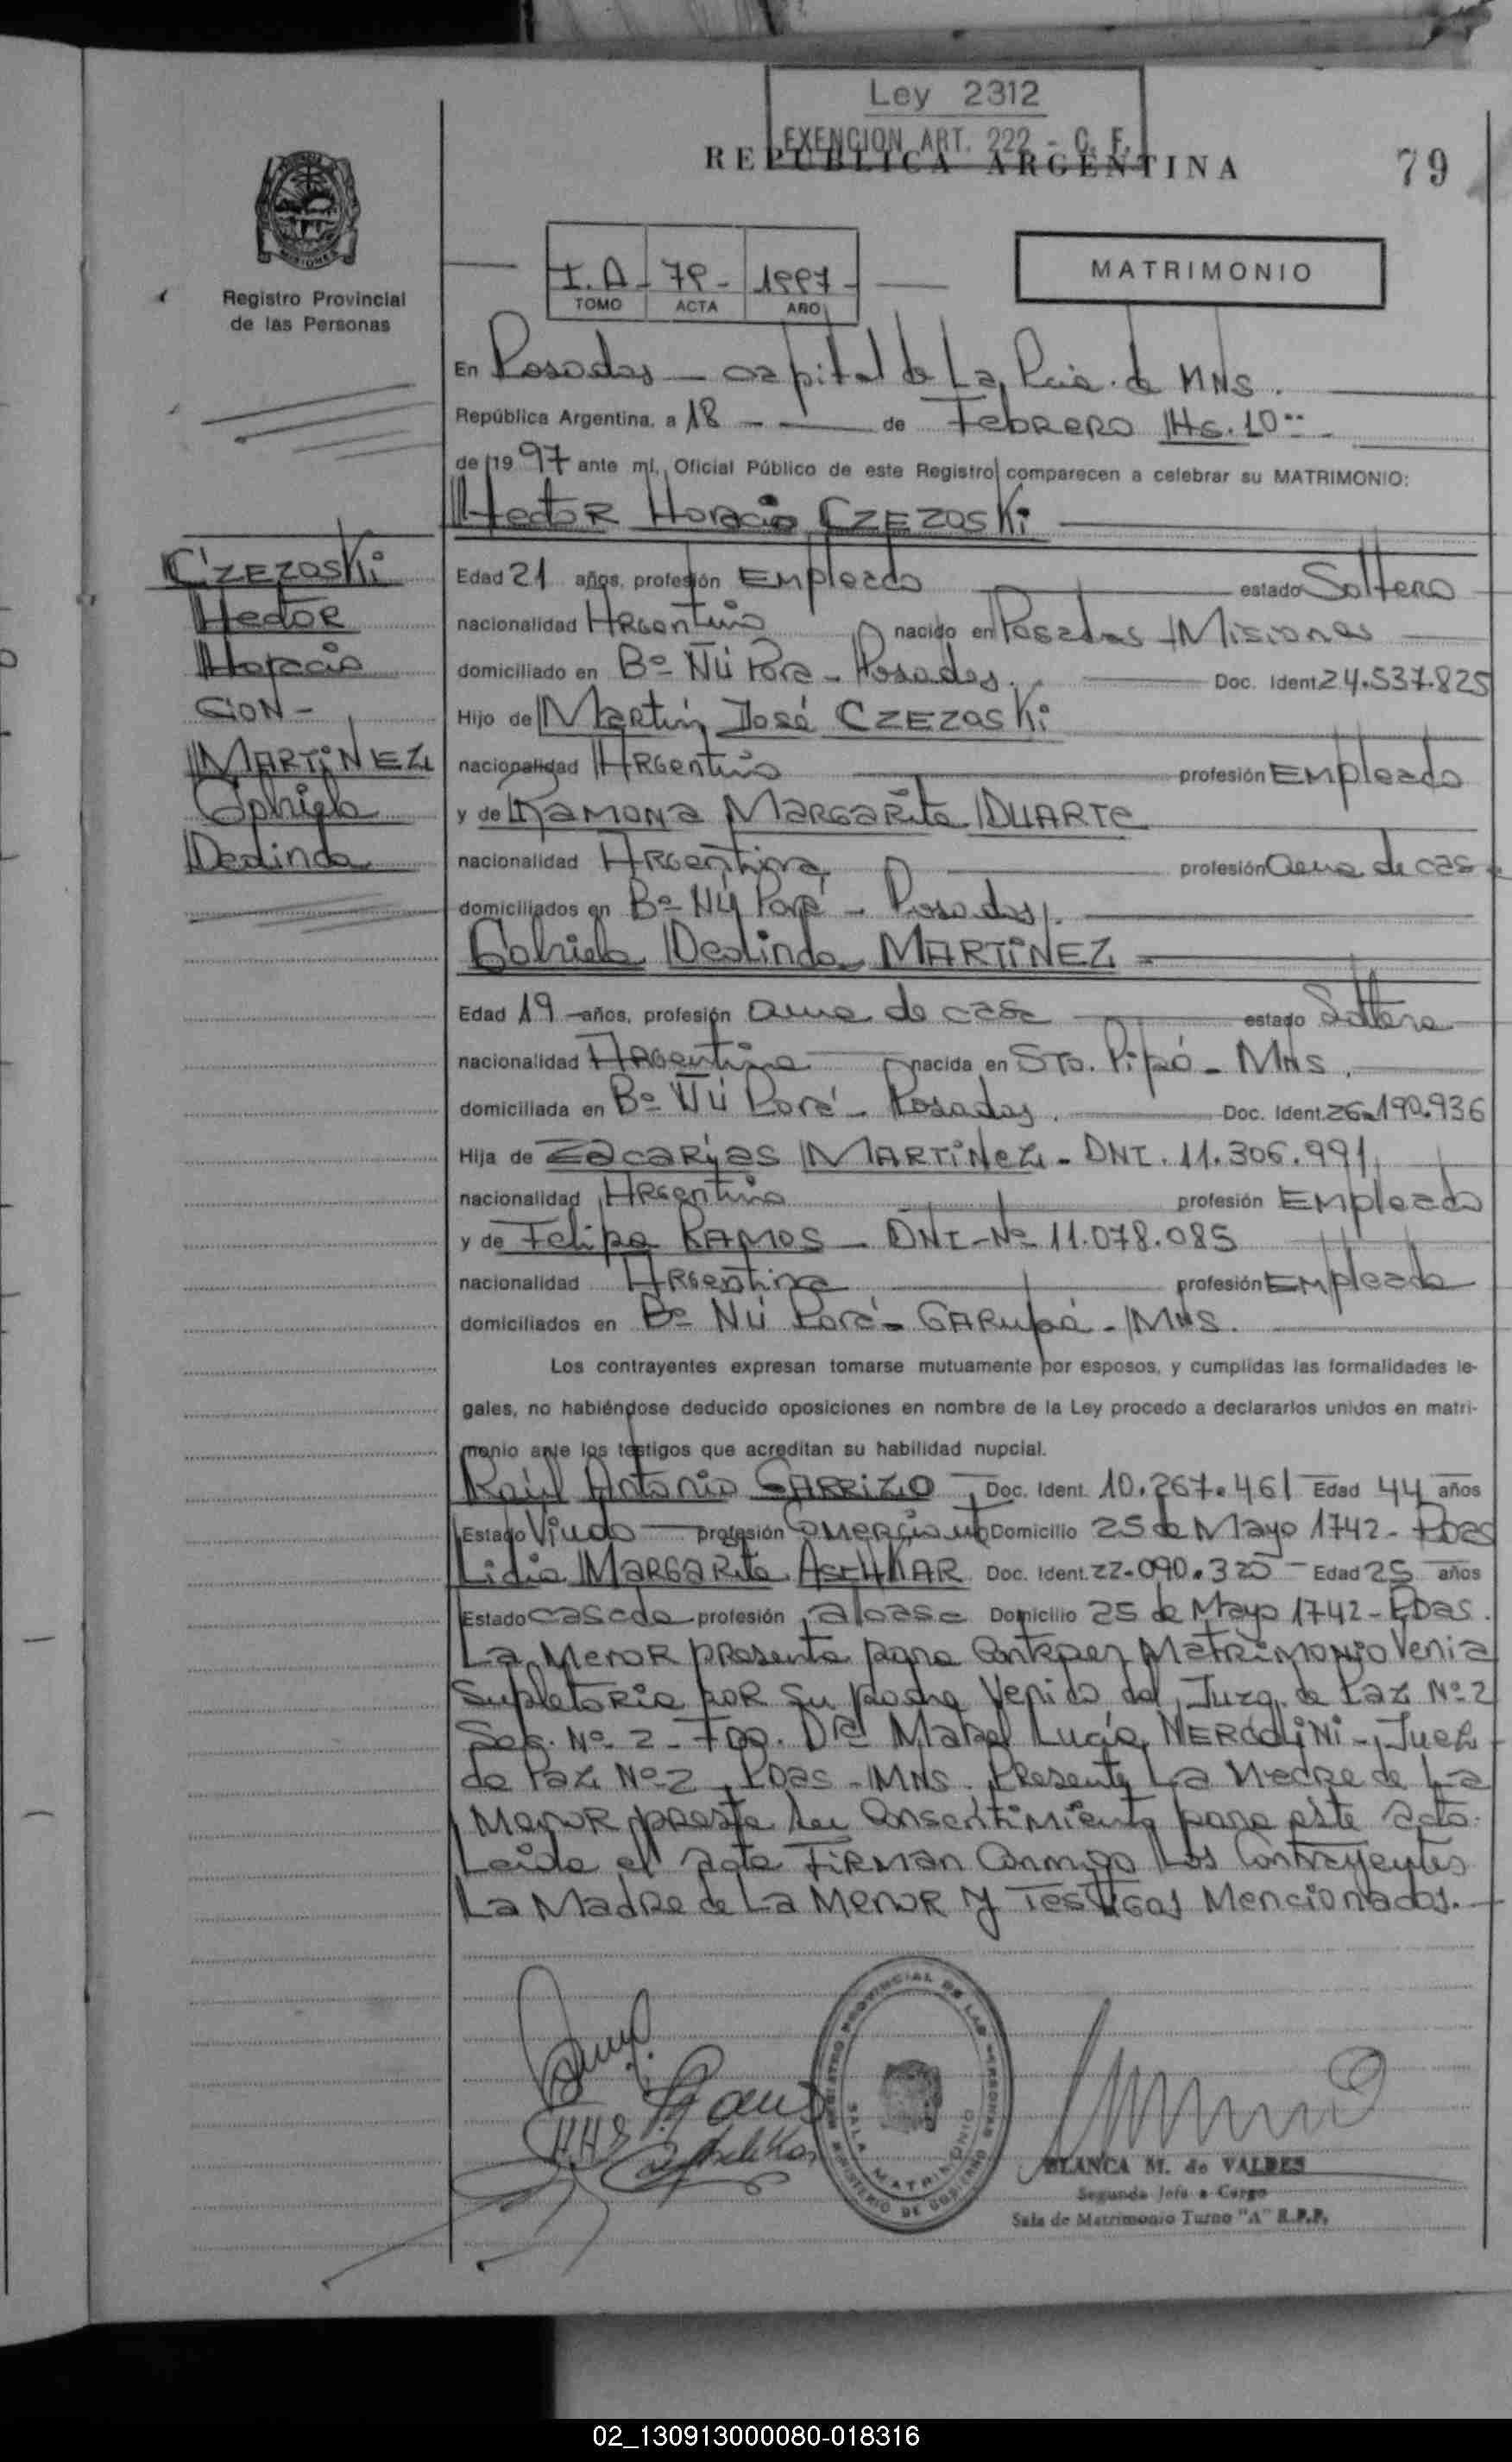 Ley 2312
EXENCION ART. 222 - C. F.
REPUBLICA ARGENTINA
79
MISIONES
Registro Provincial
de las Personas
I.A - 79 - 1997 -
TOMO ACTA AÑO
MATRIMONIO
En Posadas - capital de La Pcia. de MNS.
República Argentina, a 18 - de Febrero Hs. 10
de 1997 ante mí, Oficial Público de este Registro comparecen a celebrar su MATRIMONIO:
Hector Horacio CZEZOSKi
CZEZOSKi
Hector
Horacio
CON -
MARTINEZ
Gabriela
Deolinda
Edad 21 años, profesión Empleado estado Soltero
nacionalidad Argentino nacido en Posadas Misiones
domiciliado en Bº Ñú Porá - Posadas. Doc. Ident. 24.537.825
Hijo de Martín José CZEZOSKi
nacionalidad Argentino profesión Empleado
y de Ramona Margarita DUARTE
nacionalidad Argentina profesión ama de casa
domiciliados en Bº Ñú Porá - Posadas.
Gabriela Deolinda MARTINEZ -
Edad 19 años, profesión ama de casa estado Soltera
nacionalidad Argentina nacida en Sto. Pipó - MNS.
domiciliada en Bº Ñú Porá - Posadas. Doc. Ident. 26.190.936
Hija de Zacarías MARTINEZ - DNI. 11.306.991
nacionalidad Argentino profesión Empleado
y de Felipa RAMOS - DNI - Nº 11.078.085
nacionalidad Argentina profesión Empleada
domiciliados en Bº Ñú Porá - GARUPÁ - MNS.
Los contrayentes expresan tomarse mutuamente por esposos, y cumplidas las formalidades le-
gales, no habiéndose deducido oposiciones en nombre de la Ley procedo a declararlos unidos en matri-
monio ante los testigos que acreditan su habilidad nupcial.
Raúl Antonio GARRIZO Doc. Ident. 10.267.461 Edad 44 años
Estado Viudo profesión Domicilio 25 de Mayo 1742 - Pdas
Lidia Margarita Doc. Ident. 22.090.325 - Edad 25 años
Estado casada profesión Domicilio 25 de Mayo 1742 - Pdas.
La Menor presenta para Contraer Matrimonio Venia
Supletoria por su padre Venido del Juzg. de Paz Nº 2
Sec. Nº 2 - Fdo. Dra Mabel Lucía NERCOLINI - Juez
de Paz Nº 2, Pdas - MNS. Presente La Madre de La
Menor presta su Consentimiento para este acto.
Leída el acta Firman Conmigo Los Contrayentes
La Madre de La Menor y Testigos Mencionados. -
REGISTRO PROVINCIAL DE LAS PERSONAS
SALA MATRIMONIO
MINISTERIO DE GOBIERNO
BLANCA M. de VALDES
Segunda Jefa a Cargo
Sala de Matrimonio Turno "A" R.P.P.
02_130913000080-018316